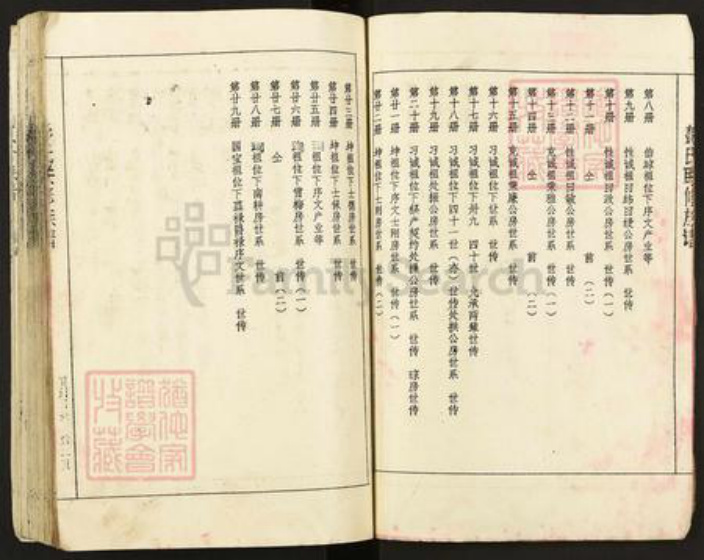 第八册 伯球祖位下序文产业等
第九册 性诚祖曰纬曰绶公房世系 世传
第十册 仝 性诚祖曰政公房世系 世传(一)
第十一册 仝 前 (二)
第十二册 性诚祖曰敏公房世系 世传
第十三册 克诚祖秉雅公房世系 世传(一)
第十四册 仝 前 (二)
第十五册 克诚祖秉濂公房世系 世传
第十六册 习诚祖位下世系 世传
第十七册 习诚祖位下卅九 四十世 兆承两缘世传
第十八册 习诚祖位下四十一世 世传处撰公房世系 世传
第十九册 习诚祖处撰公房世系 世传
第二十册 习诚祖位下 产契约处撰公房世系 世传 琼房世传
第廿一册 坤祖位下序文士刚房世系 世传(一)
第廿二册 坤祖位下士刚房世系 世传(二)
第廿三册 坤祖位下士儒房世系 世传
第廿四册 坤祖位下士保房世系 世传
第廿五册 祖位下序文产业等
第廿六册 祖位下雪梅房世系 世传(一)
第廿七册 仝 前 (二)
第廿八册 祖位下南轩房世系 世传
第廿九册 国宝祖位下嘉禄爵禄序文世系 世传
FamilySearch
犹他家谱学会特藏